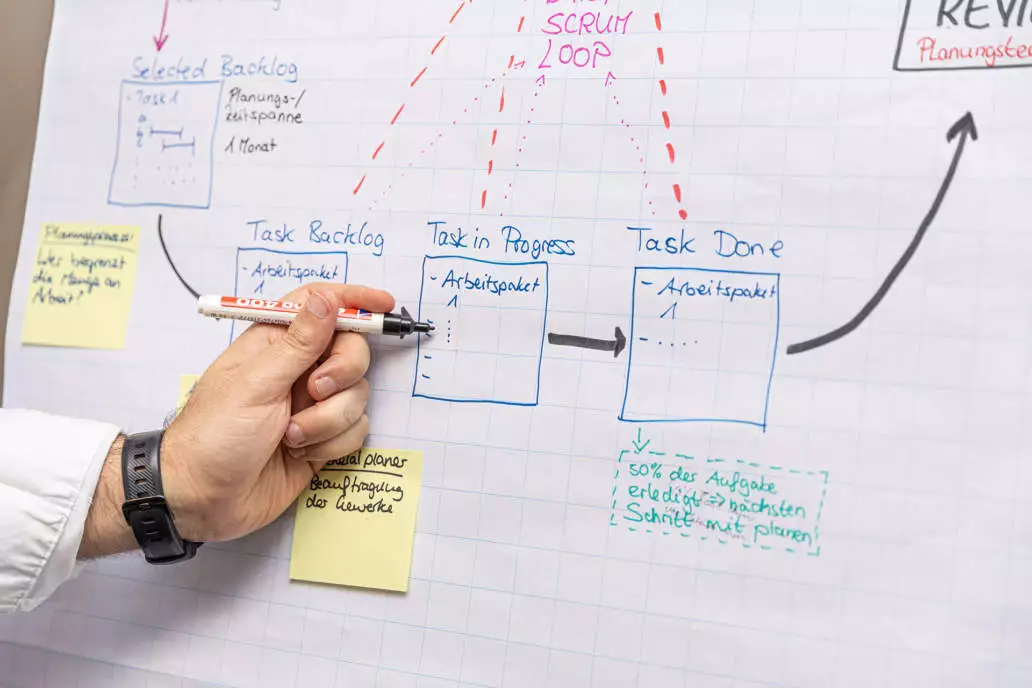 SCRUM
LOOP
Planungstea
Selected Backlog
- Task 1
Planungs-/
zeitspanne
1 Monat
Planungsprozess:
Wer begrenzt
die Menge an
Arbeit?
Task Backlog
- Arbeitspaket
1
Task in Progress
- Arbeitspaket
1
Task Done
- Arbeitspaket
1
- ....
400
eralplaner
Beauftragung
der Gewerke
50% der Aufgabe
erledigt => nächsten
Schritt mit planen!